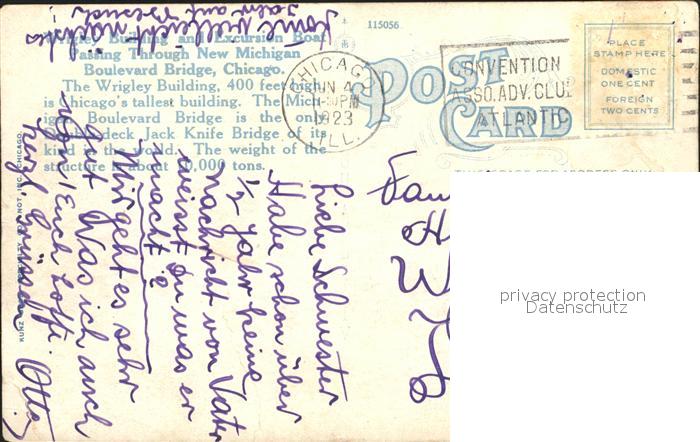 115056
Wrigley Building and Excursion Boat
Passing Through New Michigan
Boulevard Bridge, Chicago.
The Wrigley Building, 400 feet high,
is Chicago's tallest building. The Mich-
igan Boulevard Bridge is the only
deck Jack Knife Bridge of its
kind in the world. The weight of the
structure is about 10,000 tons.
POST
CARD
CHICAGO
JUN 4
PM
1923
ILL.
CONVENTION
ASSO. ADV. CLUB
ATLANTIC
PLACE
STAMP HERE
DOMESTIC
ONE CENT
FOREIGN
TWO CENTS
THIS SPACE FOR ADDRESS ONLY
Liebe Schwester
Habe schon über
1/2 Jahr keine
Nachricht von Vater
weisst Du was er
macht?
Mir geht es sehr
gut Was ich auch
von Euch hoffe.
herzl. Grüssen Otto
Komme vielleicht nächstes
Jahr auf Besuch
CHICAGO.
privacy protection
Datenschutz